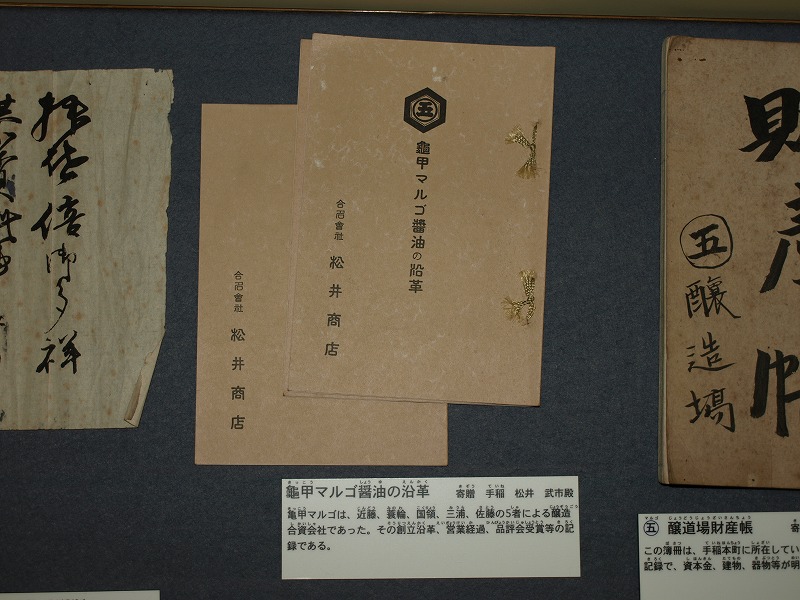 拝啓倍御多祥
五
龜甲マルゴ醬油の沿革
合名會社 松井商店
合名會社 松井商店
財産帳
五 醸造場
龜甲マルゴ醤油の沿革 寄贈 手稲 松井 武市殿
亀甲マルゴは、近藤、蓑輪、国領、三浦、佐藤の5者による醸造
合資会社であった。その創立沿革、営業経過、品評会受賞等の記
録である。
五 醸造場財産帳 寄
この簿冊は、手稲本町に所在してい
記録で、資本金、建物、器物等が明